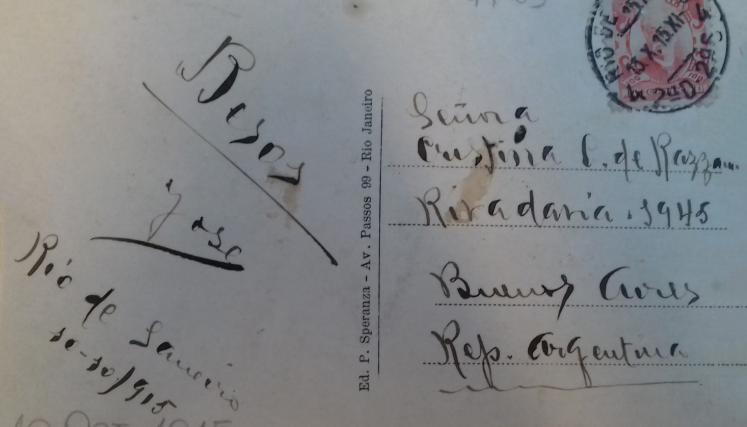 Besos
Jose
Rio de Janeiro
10-10/915
Ed. P. Speranza - Av. Passos 99 - Rio Janeiro
RIO DE
Señora
Cristina C. de
Rivadavia. 1945
Buenos Aires
Rep. Argentina